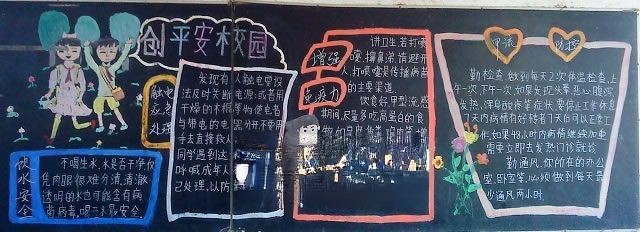 创平安校园
饮水安全
不喝生水，水是否干净仅
凭肉眼很难分清，清澈
透明的水也可能含有病
菌病毒，喝开水最安全。
触电
应急
处理
发现有人触电要设
法及时关断电源；或者用
干燥的木棍等物使者
与带电的电器分开，不要用
手去直接救人
同学遇到这
呼喊成年人
己处理，以防
增强
免疫力
讲卫生，若打喷
嚏、擤鼻涕，请避开
人，打喷嚏是传播病菌
的主要渠道。
饮食好，甲型流感
期间，尽量多吃高蛋白的食
甲流
防控
勤检查，做到每天2次体温检查，上
午一次，下午一次，如果发现头晕、恶心、腹泻、
发热、浑身酸疼等症状，要停止工作休息
7天内病情有好转者7天后可以正常工
作，如果48小时内病情继续加重
需要立即去发热门诊就诊
勤通风，你所在的办公
室、卧室等，必须做到每天最
少通风两小时。